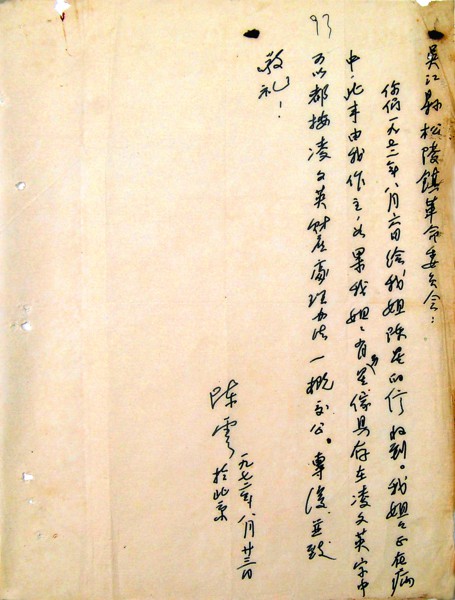 吴江县松陵镇革命委员会：
你们一九七二年八月六日给我姐陈星的信收到。我姐正在病
中，此事由我作主，如果我姐姐有些傢具存在凌文英家中
可以都按凌文英财产处理办法一概交公。专复并致
敬礼！
陈云
一九七二年八月廿三日
于北京
93